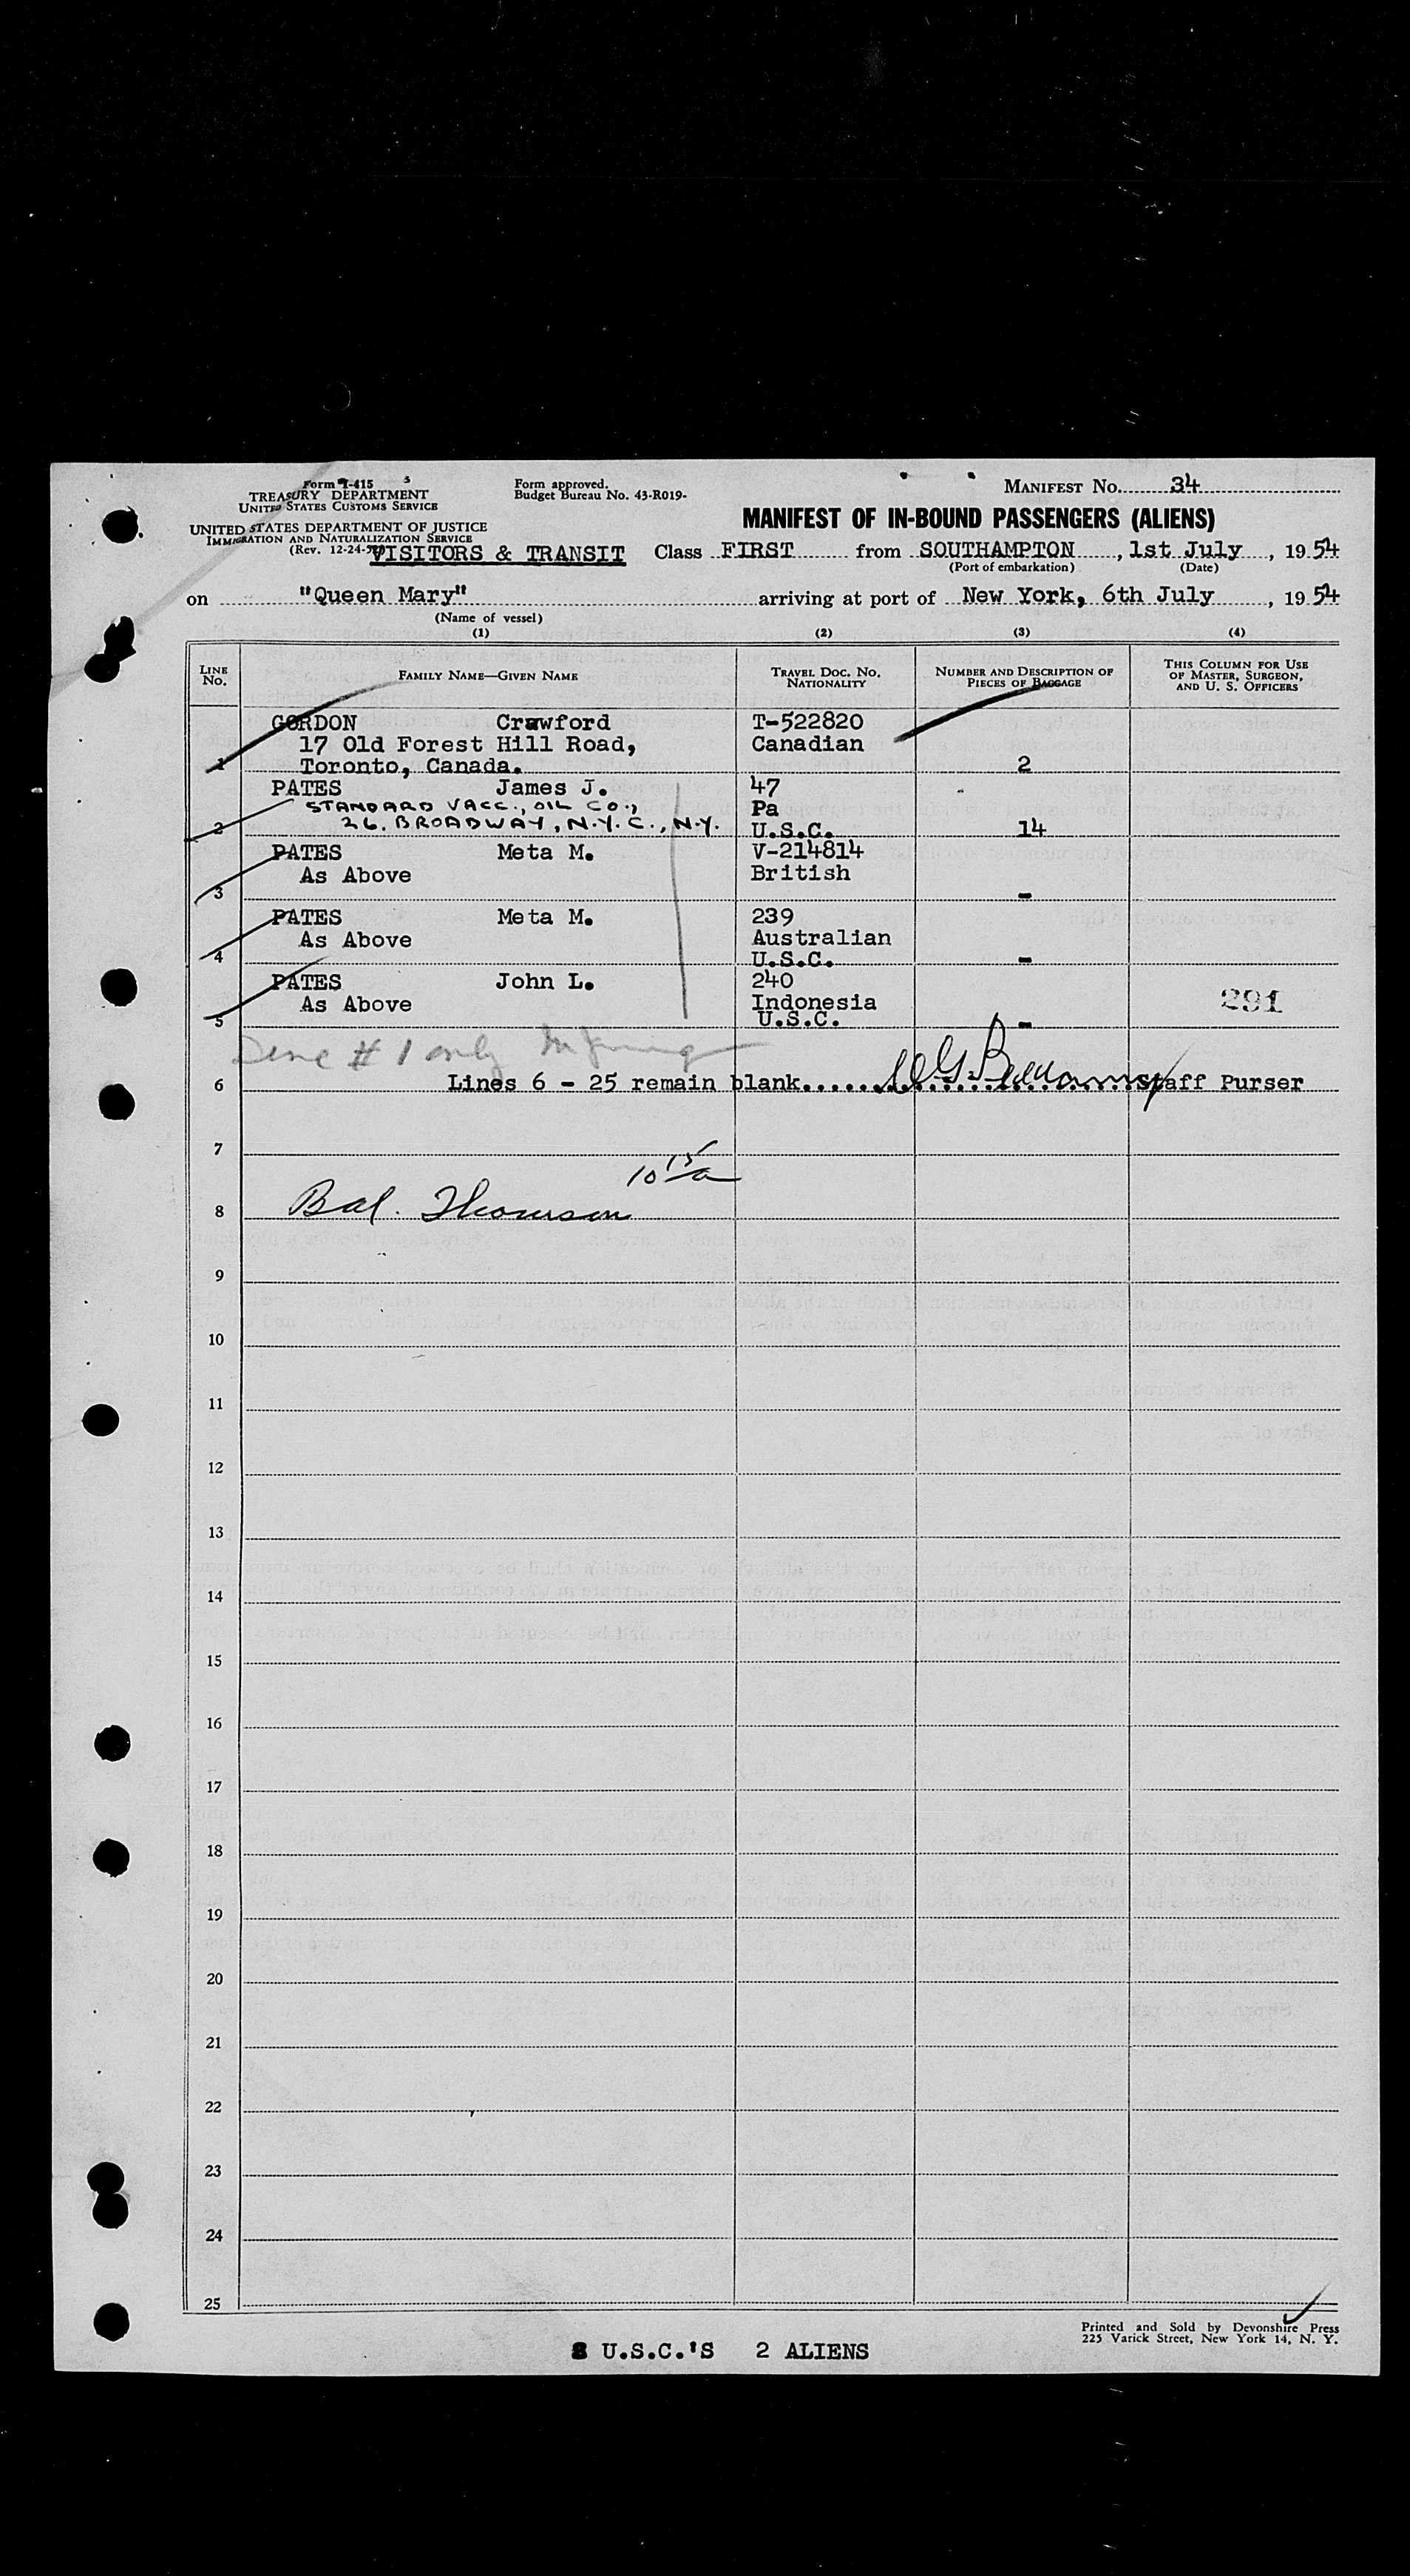 Form I-415
TREASURY DEPARTMENT
UNITED STATES CUSTOMS SERVICE
Form approved.
Budget Bureau No. 43-R019-
MANIFEST No. 34
UNITED STATES DEPARTMENT OF JUSTICE
IMMIGRATION AND NATURALIZATION SERVICE
(Rev. 12-24-
MANIFEST OF IN-BOUND PASSENGERS (ALIENS)
VISITORS & TRANSIT Class FIRST from SOUTHAMPTON, 1st July, 1954
(Port of embarkation) (Date)
on "Queen Mary" arriving at port of New York, 6th July, 1954
(Name of vessel)
(1) (2) (3) (4)
LINE No. FAMILY NAME—GIVEN NAME TRAVEL DOC. No. NATIONALITY NUMBER AND DESCRIPTION OF PIECES OF BAGGAGE THIS COLUMN FOR USE OF MASTER, SURGEON, AND U. S. OFFICERS
GORDON Crawford T-522820
17 Old Forest Hill Road, Canadian
1 Toronto, Canada. 2
PATES James J. 47
STANDARD VACC., OIL CO., Pa
2 26. BROADWAY, N.Y.C., N.Y. U.S.C. 14
PATES Meta M. V-214814
As Above British
3 -
PATES Meta M. 239
As Above Australian
4 U.S.C. -
PATES John L. 240
As Above Indonesia 291
5 U.S.C. -
Line # 1 only
6 Lines 6 - 25 remain blank.......................Staff Purser
7
10 15 a
8 Bal. Thomson
9
10
11
12
13
14
15
16
17
18
19
20
21
22
23
24
25
Printed and Sold by Devonshire Press
225 Varick Street, New York 14, N. Y.
U.S.C.'S 2 ALIENS